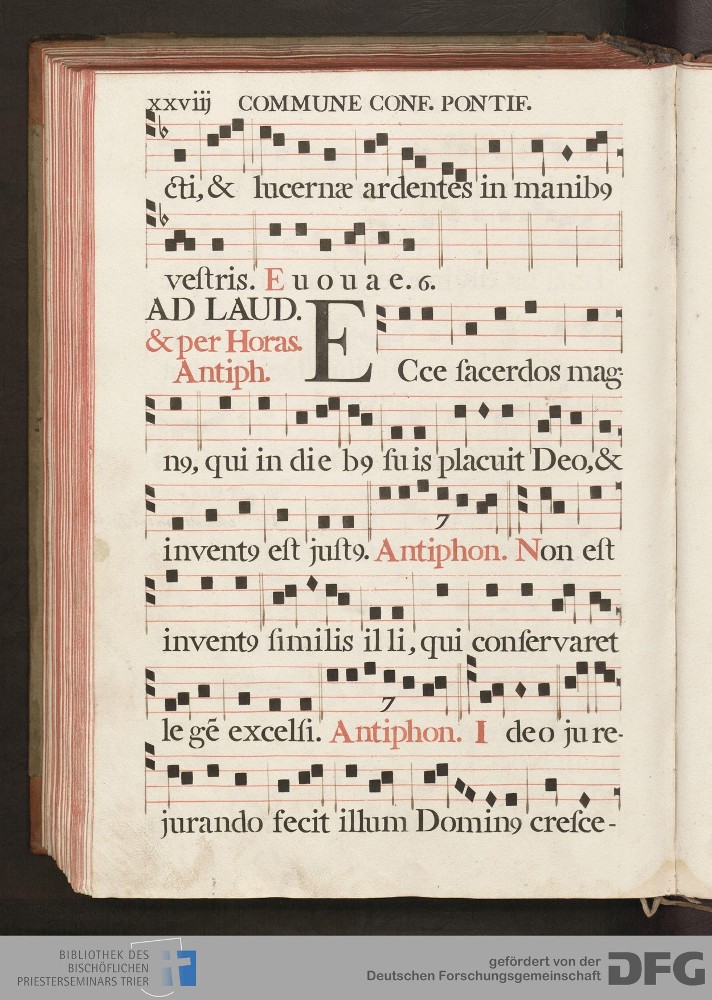 xxviij COMMUNE CONF. PONTIF.
cti, & lucernæ ardentes in manib9
veſtris. E u o u a e. 6.
AD LAUD.
& per Horas.
Antiph.
ECce ſacerdos mag-
n9, qui in die b9 ſuis placuit Deo, &
7
invent9 eſt juſt9. Antiphon. Non eſt
invent9 ſimilis illi, qui conſervaret
7
legē excelſi. Antiphon. Ideo jure-
jurando fecit illum Domin9 creſce-
BIBLIOTHEK DES
BISCHÖFLICHEN
PRIESTERSEMINARS TRIER
gefördert von der
Deutschen Forschungsgemeinschaft
DFG